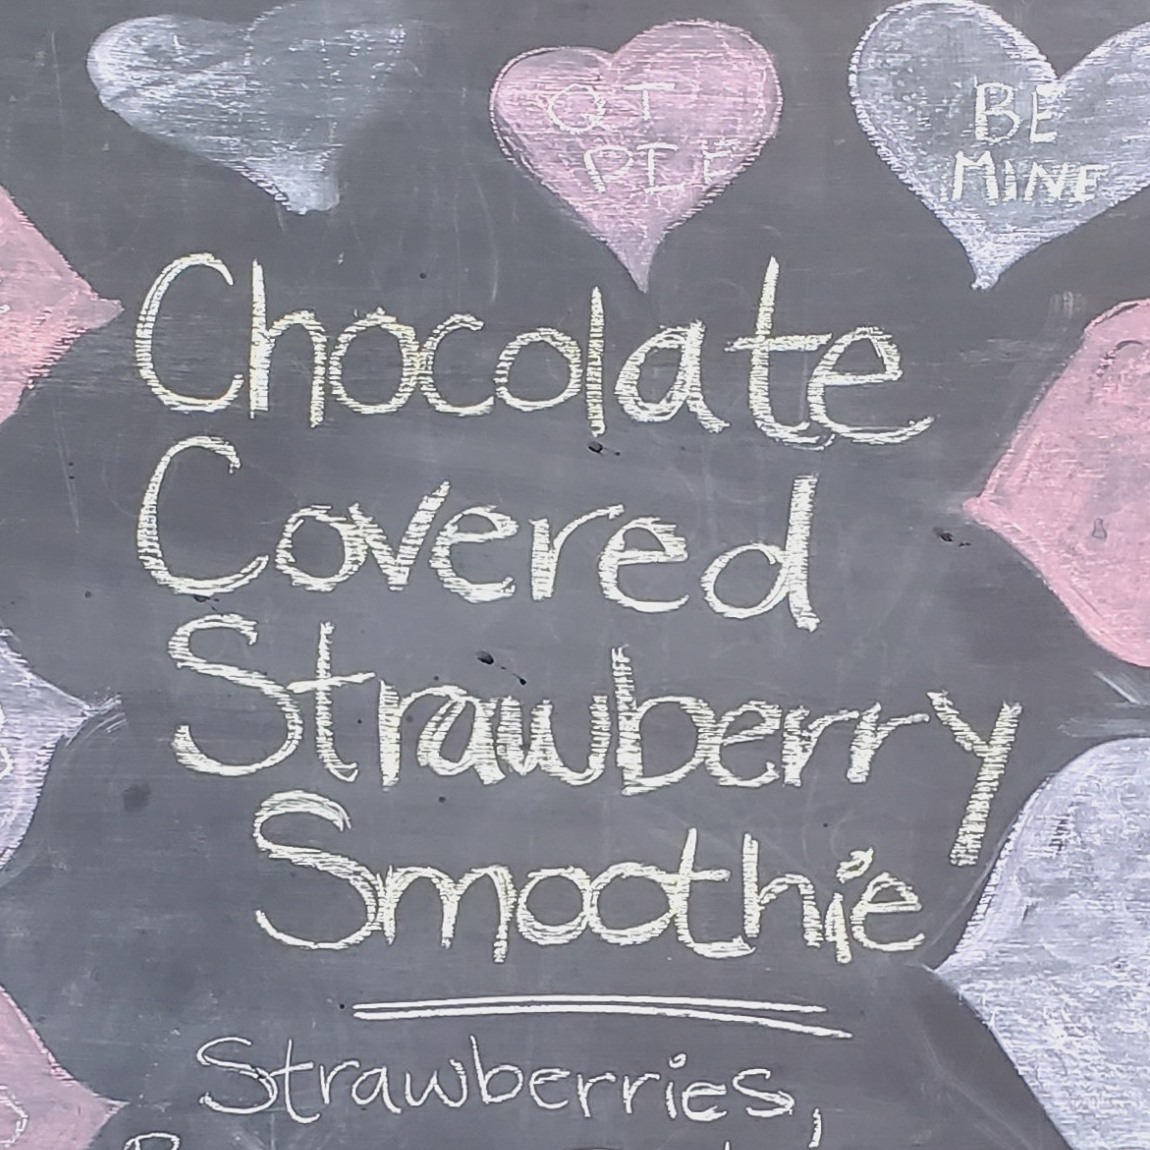 QT
PIE
BE
MINE
Chocolate
Covered
Strawberry
Smoothie
Strawberries,